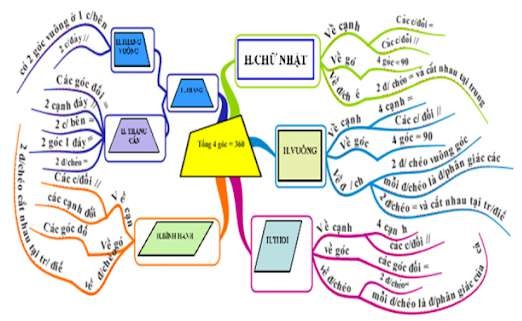 Tổng 4 góc = 360
H.CHỮ NHẬT
Về cạnh
Các c/đối =
Các c/đối //
Về gó
4 góc = 90
Về đ/ch é
2 đ/ chéo = và cắt nhau tại trung
H.VUÔNG
Về cạnh
4 cạnh =
Các c/ đối //
Về góc
4 góc = 90
Về đ / ch
2 đ/ chéo vuông góc
mỗi đ/chéo là đ/phân giác các
2 đ/chéo = và cắt nhau tại tr/điể
H.THOI
Về cạnh
4 cạn h
các c/đối //
về góc
các góc đối =
về đ/chéo
2 đ/chéo=
mỗi đ/chéo là đ/phân giác của
H.BÌNH HÀNH
Về cạn
Các c/đối //
các cạnh đối
Về gó
Các góc đố
về đ/chéo
2 đ/chéo cắt nhau tại tr/ điể
H.THANG VUÔNG
có 2 góc vuông ở 1 c/bên
2 c/đáy //
H. THANG CÂN
Các góc đối =
2 cạnh đáy //
2 c/ bên =
2 góc 1 đáy =
2 đ/chéo =